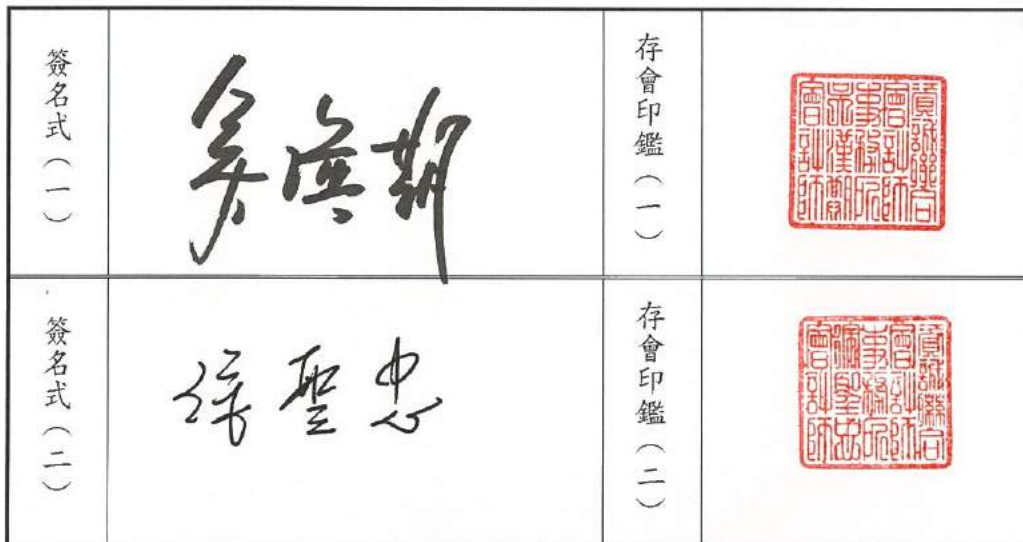 簽名式（一）
吳漢期
存會印鑑（一）
資誠聯合
會計師
事務所
吳漢期
會計師
簽名式（二）
徐聖忠
存會印鑑（二）
資誠聯合
會計師
事務所
徐聖忠
會計師